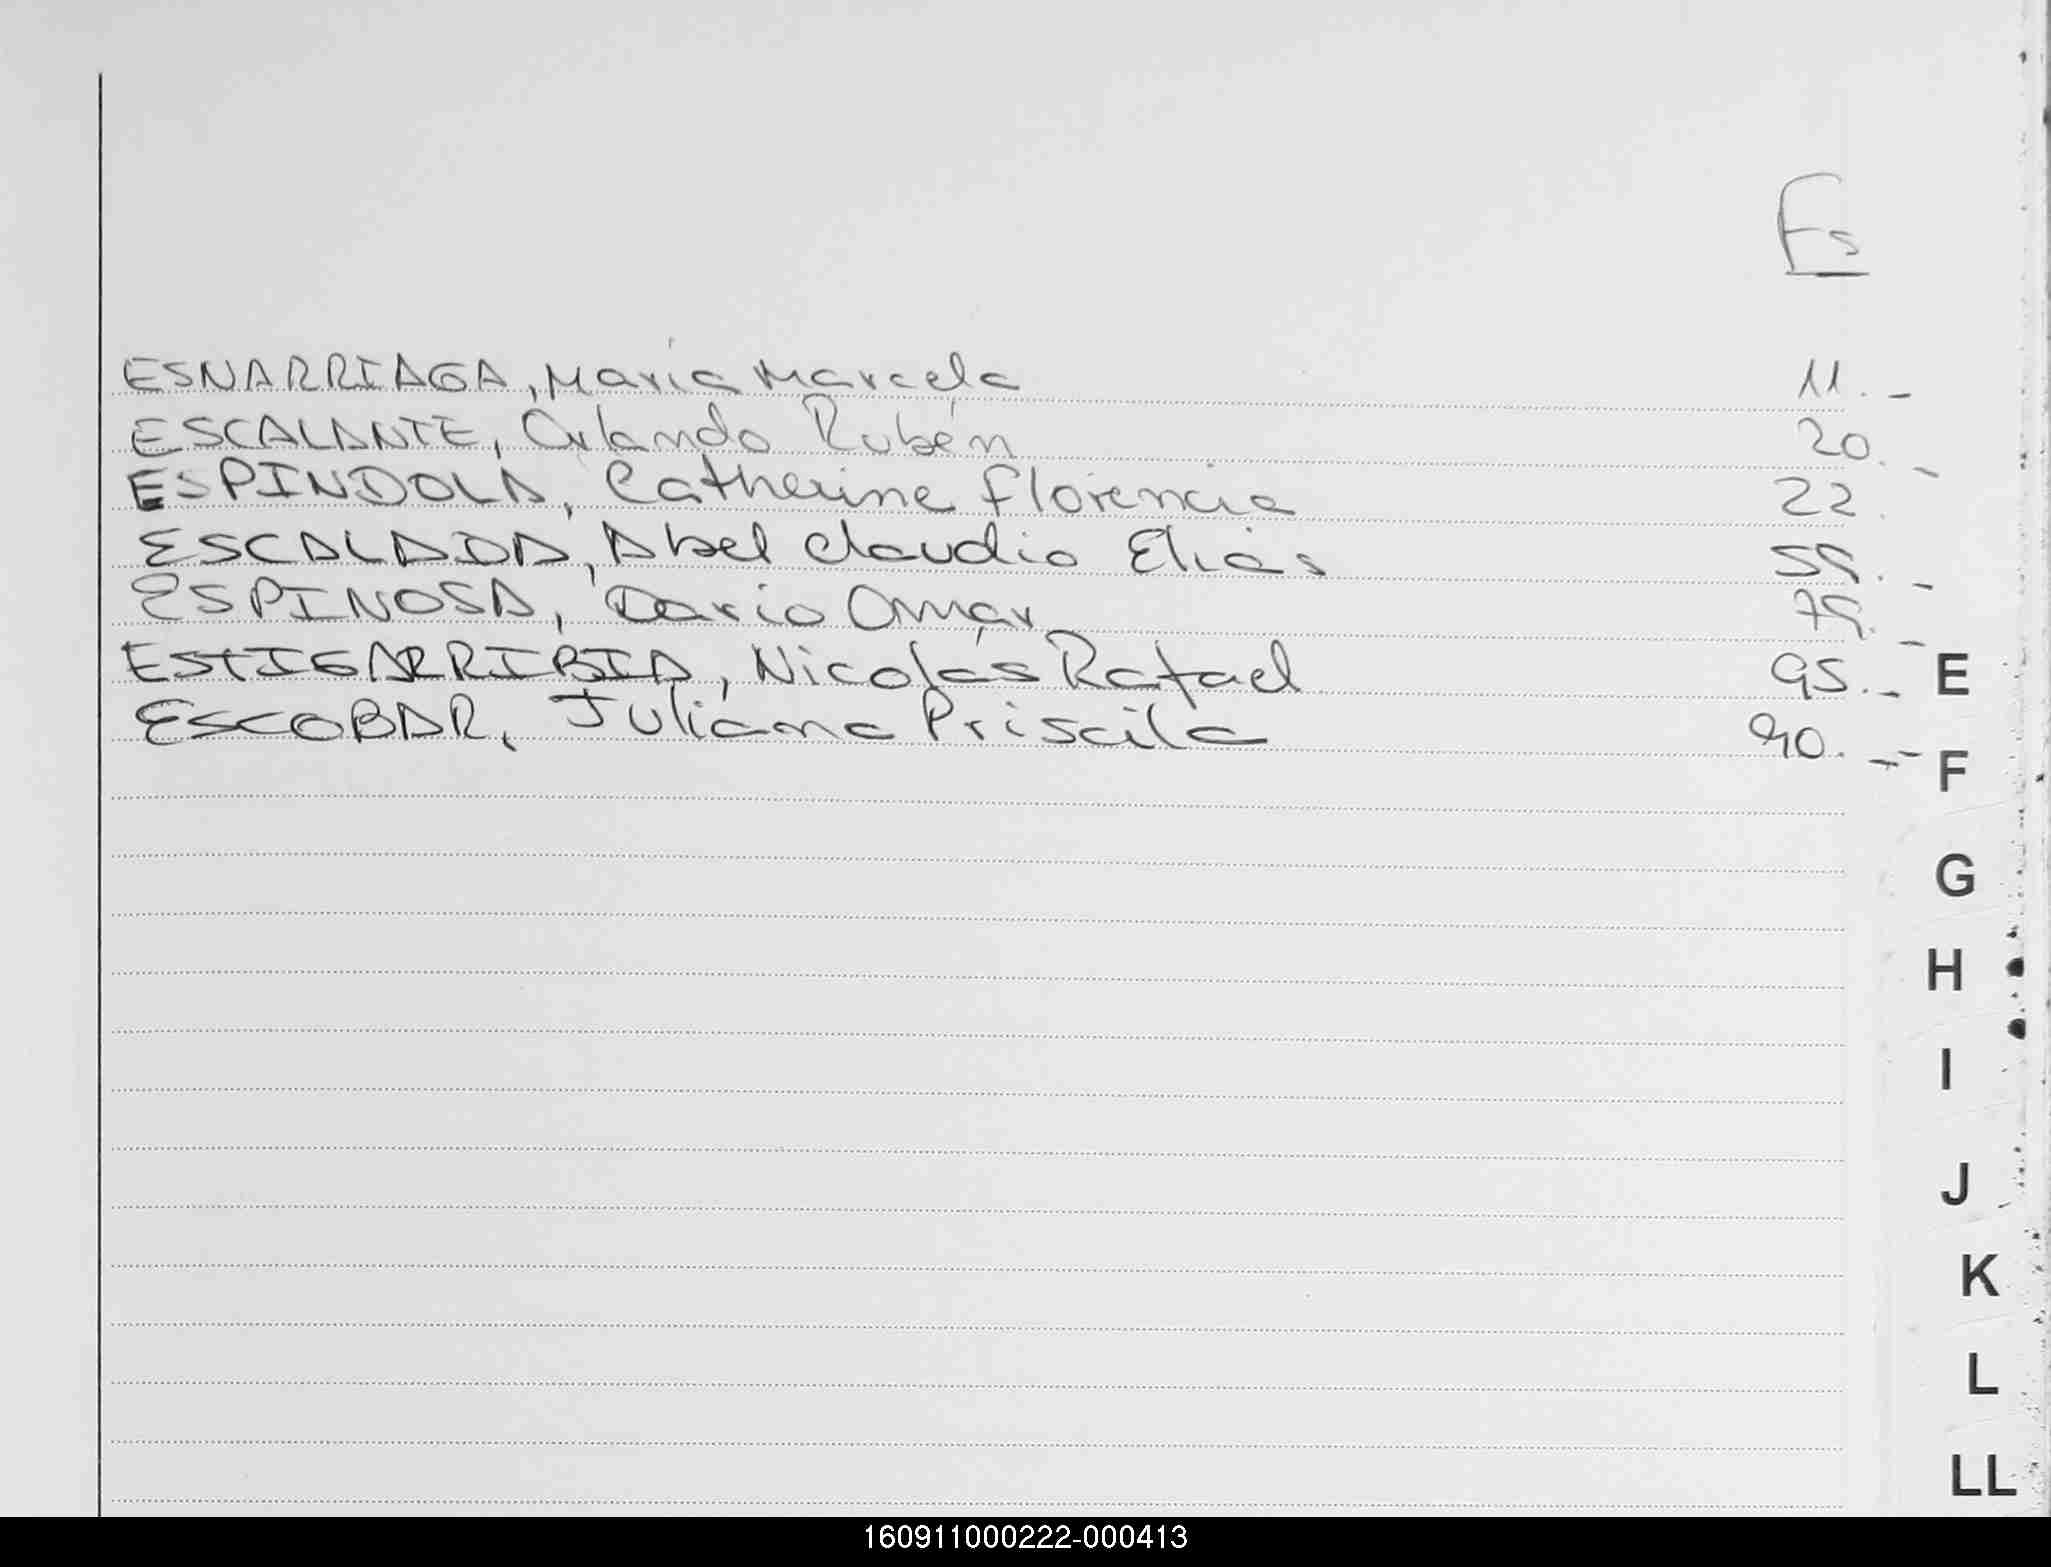 Fs
ESNARRIAGA, María Marcela 11.-
ESCALANTE, Orlando Rubén 20.-
ESPINDOLA, Catherine Florencia 22.
ESCALADA, Abel Claudio Elías 59.-
ESPINOSA, Darío Omar 79.-
ESTIGARRIBIA, Nicolás Rafael 95.-
ESCOBAR, Juliana Priscila 90.-
E
F
G
H
I
J
K
L
LL
160911000222-000413